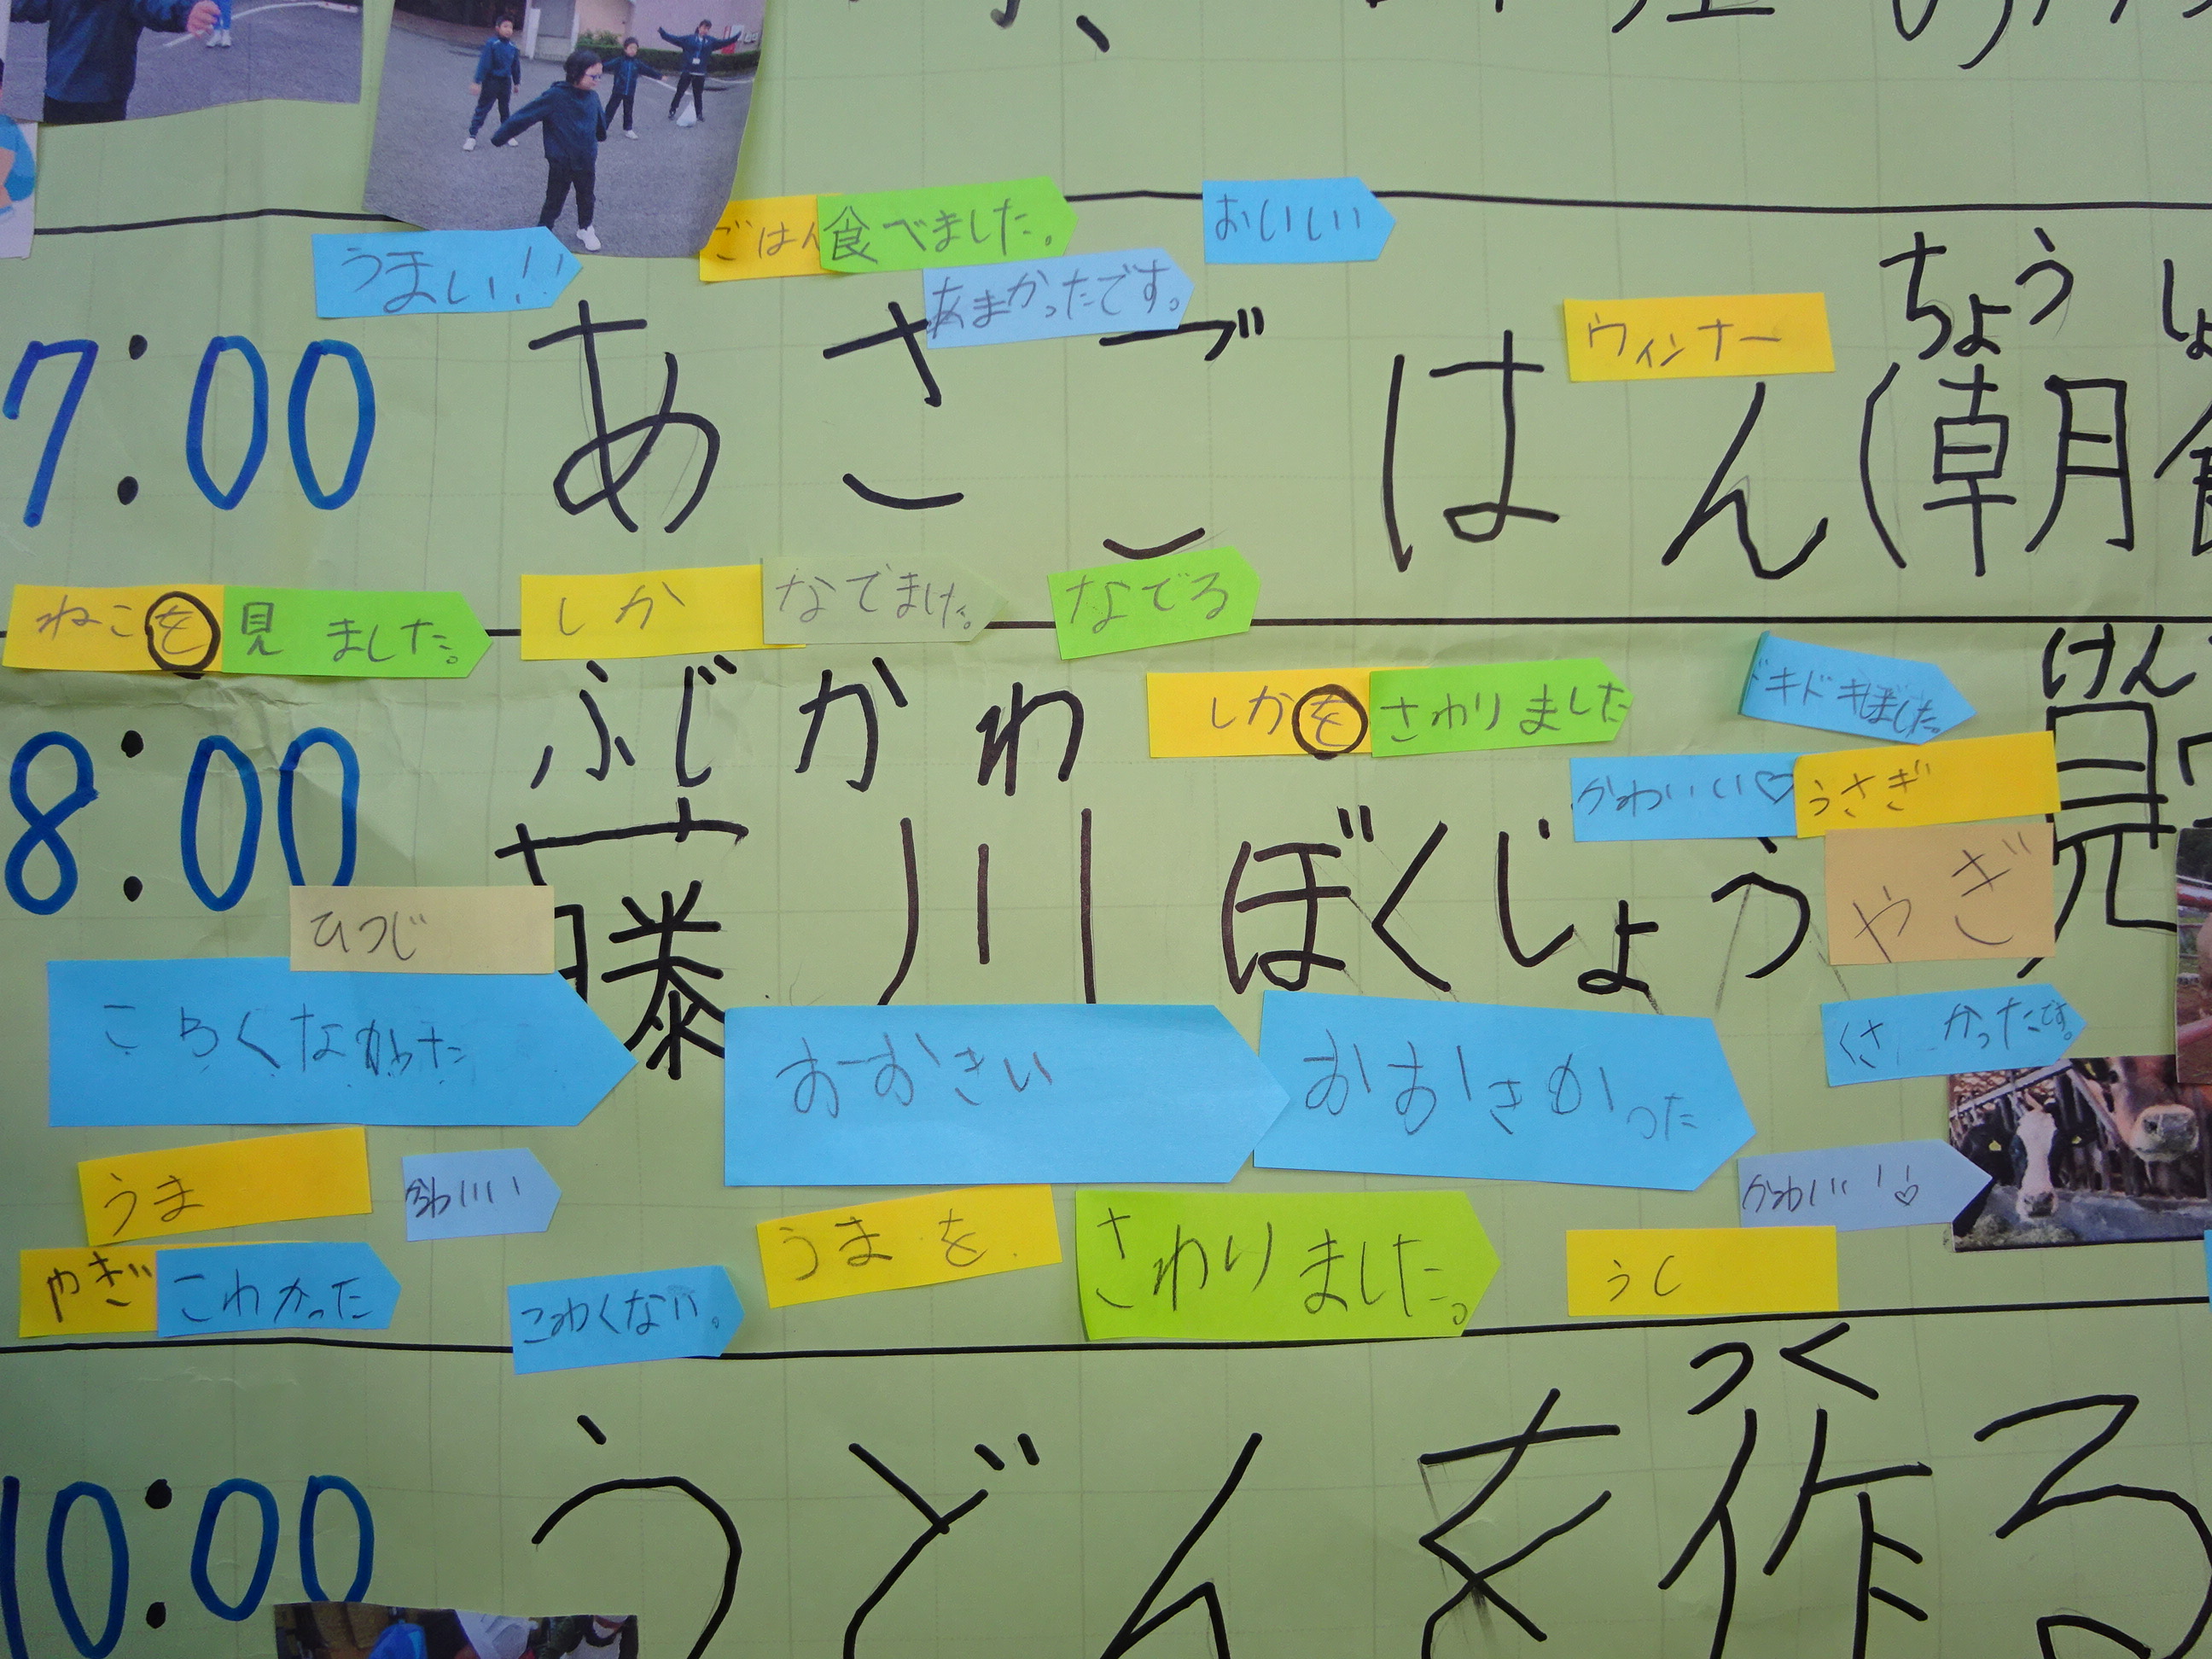 ごはん 食べました。 おいしい
うまい!! あまかったです。
ウィンナー
ちょう
7:00 あさごはん(朝
ねこを 見ました。 しか なでました。 なでる
しかを さわりました
けん
ふじかわ
かわいい♡ うさぎ
8:00 藤川ぼくじょう 見
ひつじ やぎ
おーおきい おおきかった くさかったです。
うま かわいい かわいい!♡
やぎ こわかった こわくない。 うまを さわりました。 うし
つく
10:00 うどんを作る